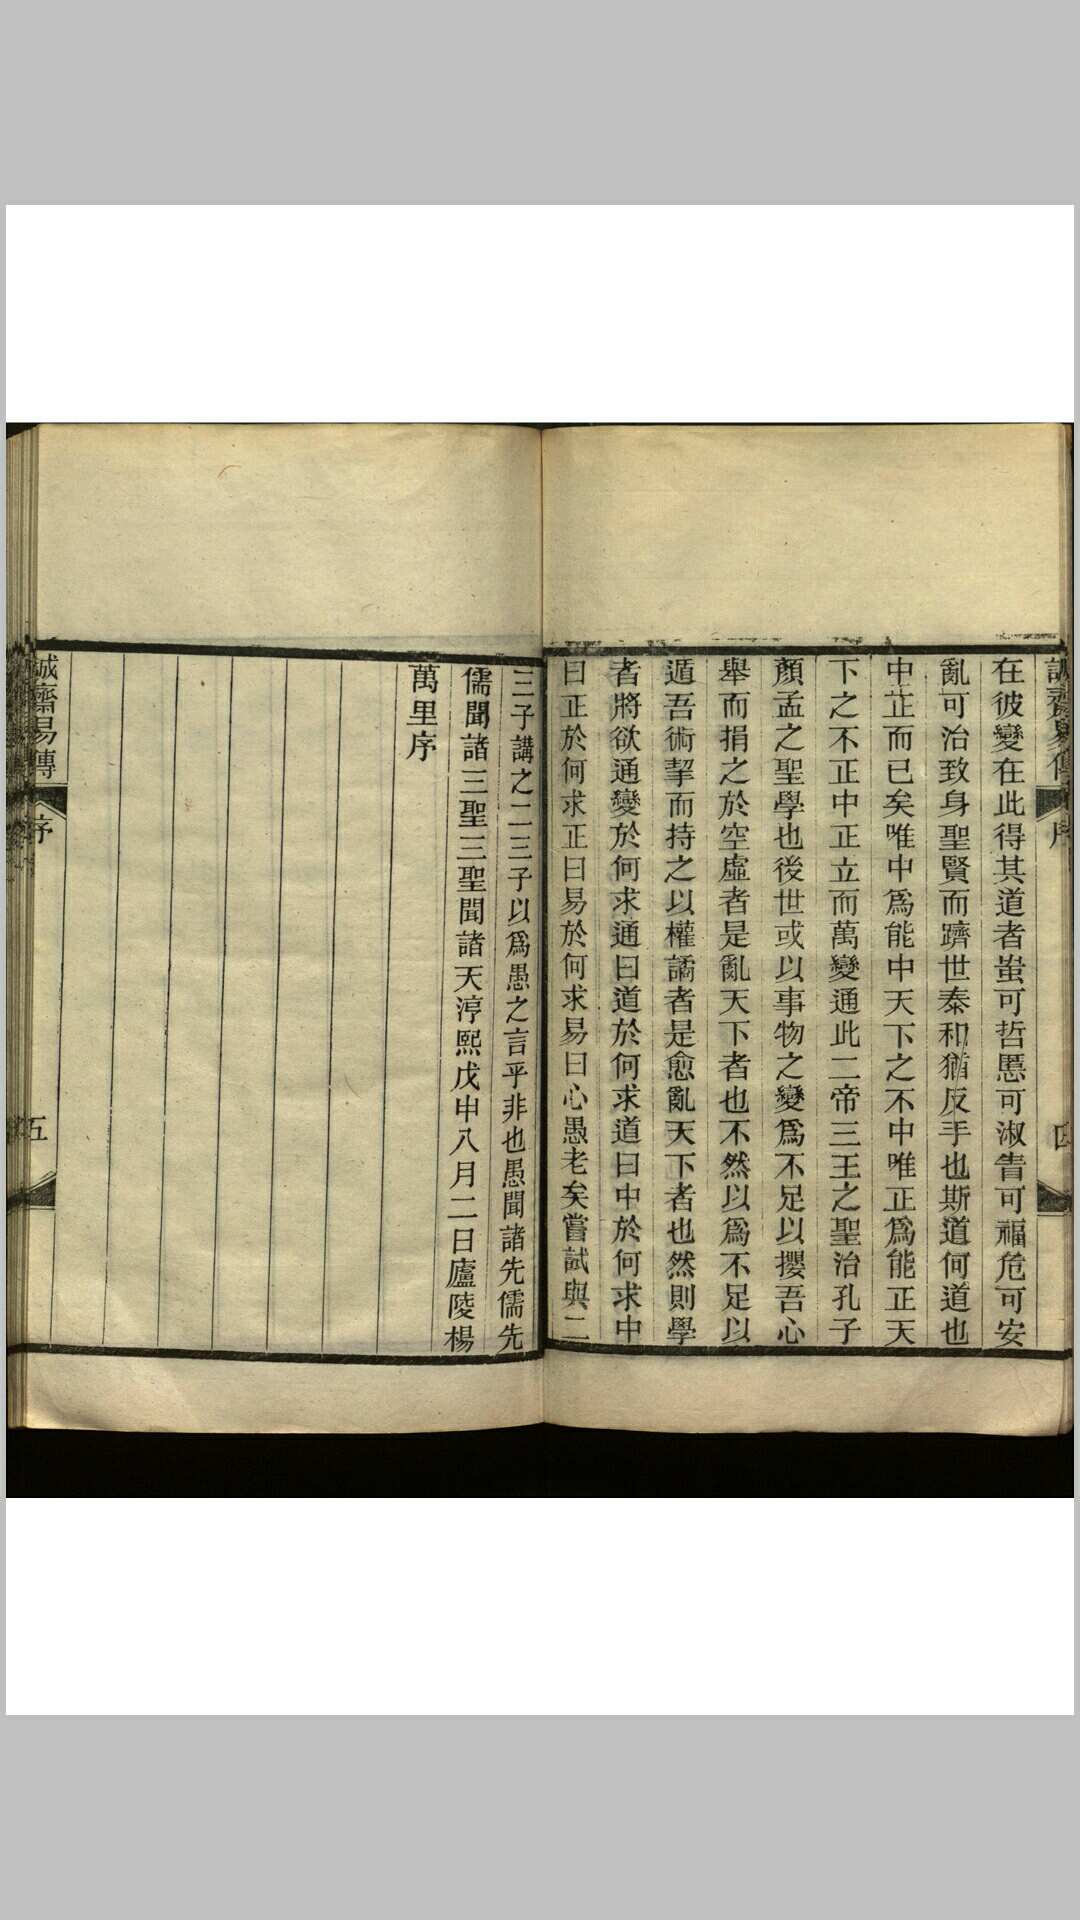 誠齋易傳 序 四
在彼變在此得其道者蚩可哲慝可淑眚可福危可安
亂可治致身聖賢而躋世泰和猶反手也斯道何道也
中正而已矣唯中爲能中天下之不中唯正爲能正天
下之不正中正立而萬變通此二帝三王之聖治孔子
顏孟之聖學也後世或以事物之變爲不足以攖吾心
舉而捐之於空虛者是亂天下者也不然以爲不足以
遁吾術挈而持之以權譎者是愈亂天下者也然則學
者將欲通變於何求通曰道於何求道曰中於何求中
曰正於何求正曰易於何求易曰心愚老矣嘗試與二
三子講之二三子以爲愚之言乎非也愚聞諸先儒先
儒聞諸三聖三聖聞諸天淳熙戊申八月二日廬陵楊
萬里序
誠齋易傳 序 五